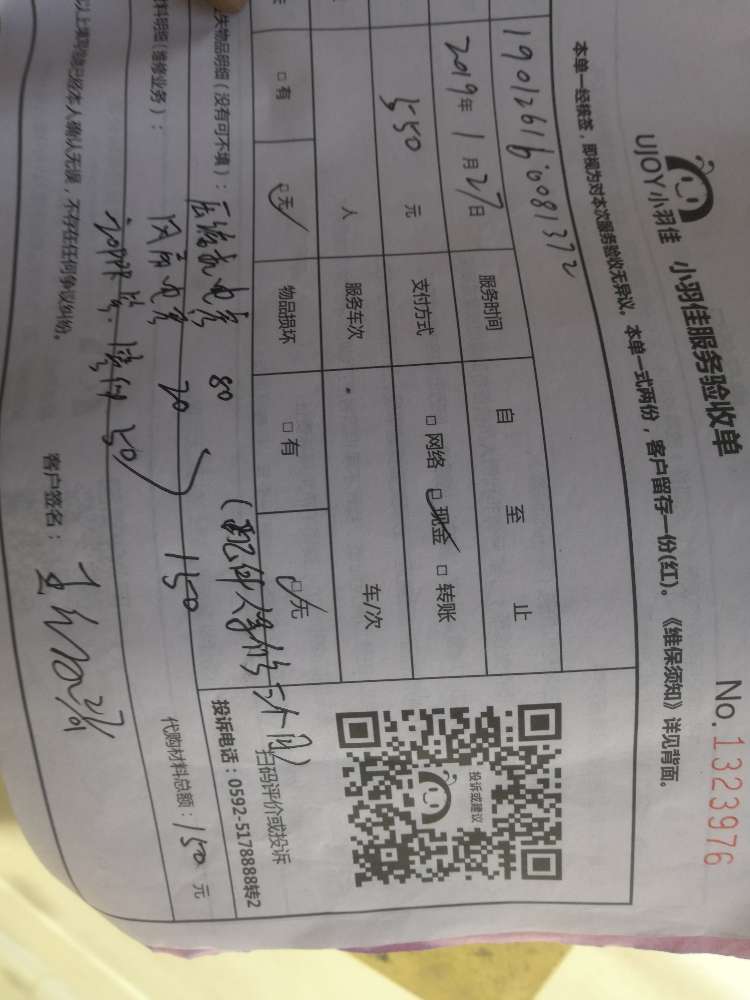 UJOY小羽佳 小羽佳服务验收单
No.1323976
本单一经接签，即视为对本次服务验收无异议。本单一式两份，客户留存一份(红)。《维保须知》详见背面。
2019年1月27日 服务时间 自 至 止
550元 支付方式 □网络 ☑现金 □转账
人 服务车次 车/次
□有 ☑无 物品损坏 □有 ☑无
投诉或建议
扫码评价或投诉
投诉电话：0592-5178888转2
失物品明细（没有可不填）：
压缩机电容 80
料明细（维修业务）：
风扇电容 20
50
150
代购材料总额：150元
以上填写他已经本人确认无误，不存在任何争议纠纷。
客户签名：